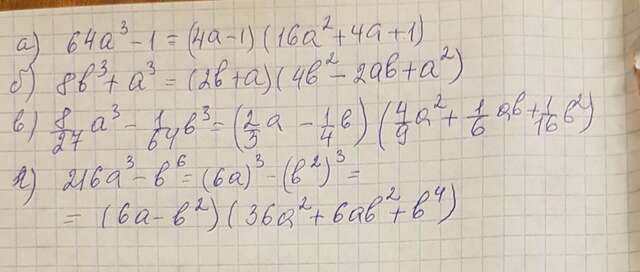 а) 64a³ - 1 = (4a-1)(16a² + 4a + 1)
б) 8b³ + a³ = (2b+a)(4b² - 2ab + a²)
в) 8/27 a³ - 1/64 b³ = (2/3 a - 1/4 b)(4/9 a² + 1/6 ab + 1/16 b²)
г) 216a³ - b⁶ = (6a)³ - (b²)³ =
= (6a - b²)(36a² + 6ab² + b⁴)